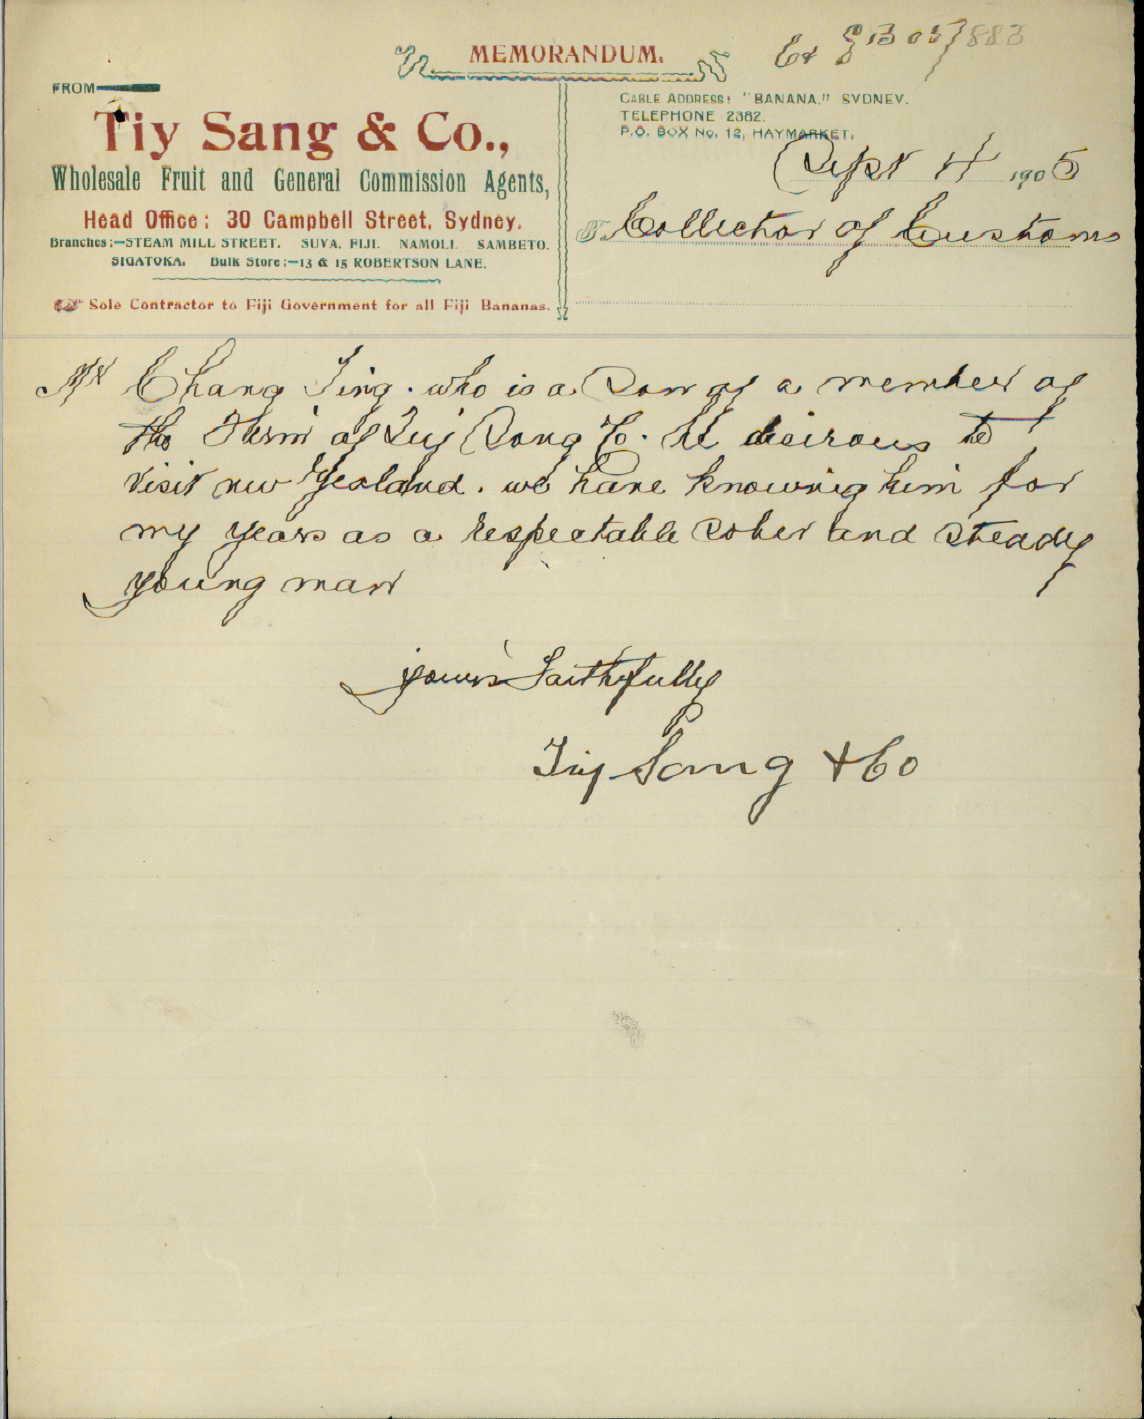 MEMORANDUM.
FROM
Tiy Sang & Co.,
Wholesale Fruit and General Commission Agents,
Head Office: 30 Campbell Street, Sydney.
Branches:—STEAM MILL STREET. SUVA, FIJI. NAMOLI. SAMBETO.
SIGATOKA. Bulk Store:—13 & 15 ROBERTSON LANE.
Sole Contractor to Fiji Government for all Fiji Bananas.
CABLE ADDRESS: "BANANA," SYDNEY.
TELEPHONE 2382.
P.O. BOX No. 12, HAYMARKET.
Sept 4 1905
To Collector of Customs
Mr Chang Ting . who is a Son of a member of
the Firm of Song Co. desirous to
visit new Zealand . we have knowing him for
my years as a respectable sober and steady
young man
yours Faithfully
Tiy Sang & Co